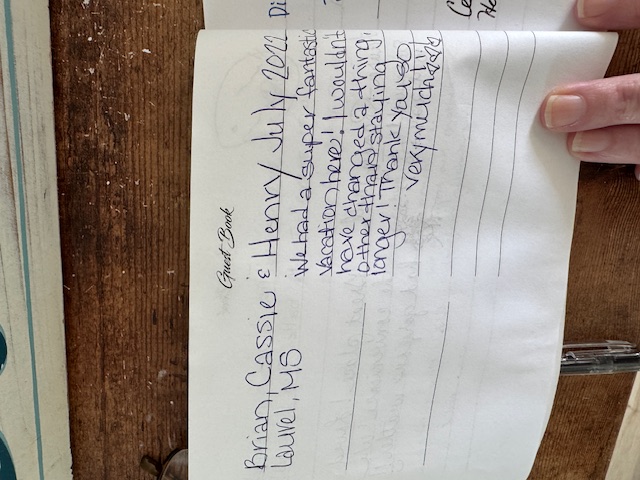 Guest Book
Brian, Cassie & Henry July 2022
Laurel, MS
We had a super fantastic
vacation here! I wouldn't
have changed a thing,
other than staying
longer! Thank you so
very much!